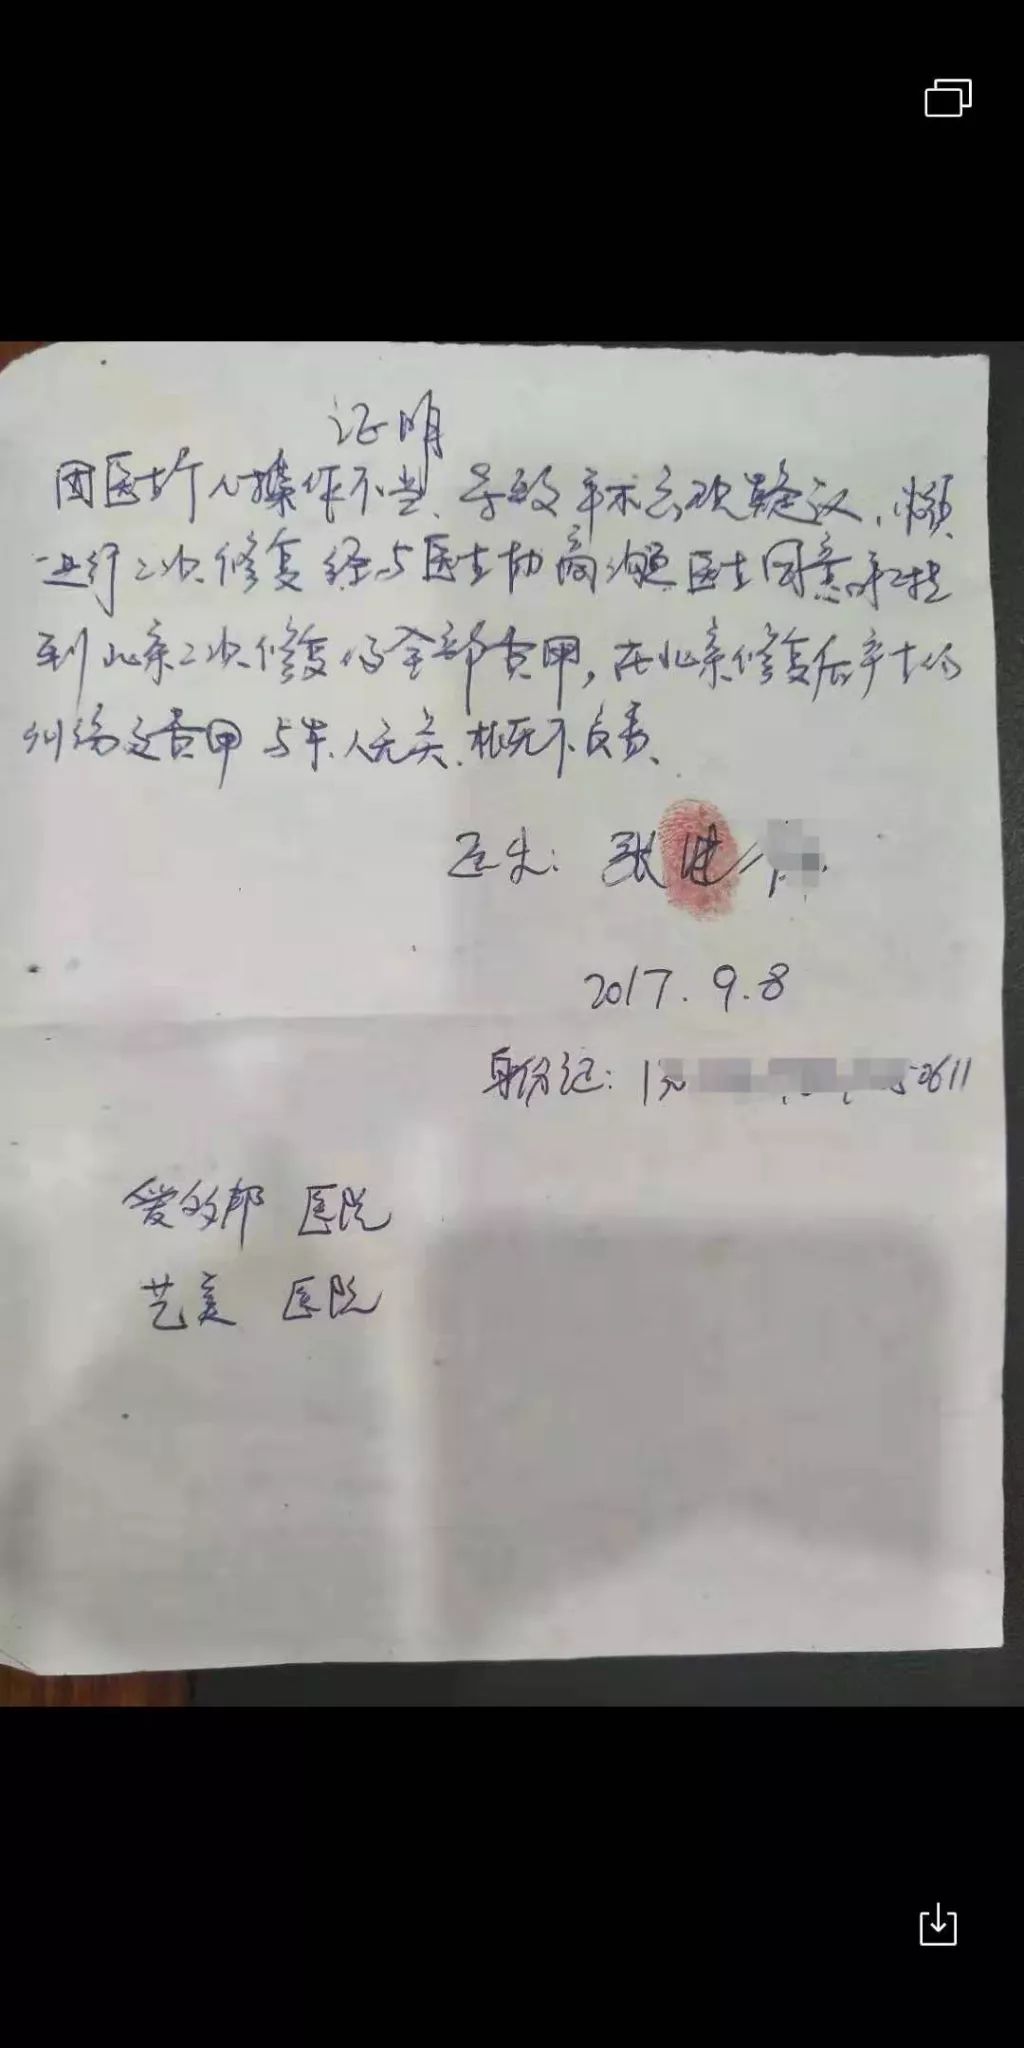 证明
因医生个人操作不当、导致手术出现疑议，必须
进行二次修复 经与医生协商 医生同意承担
到北京二次修复的全部费用，在北京修复后产生的
纠纷及费用 与本人无关.概不负责、
医生：张
2017.9.8
身份证：
爱的邦 医院
艺美 医院